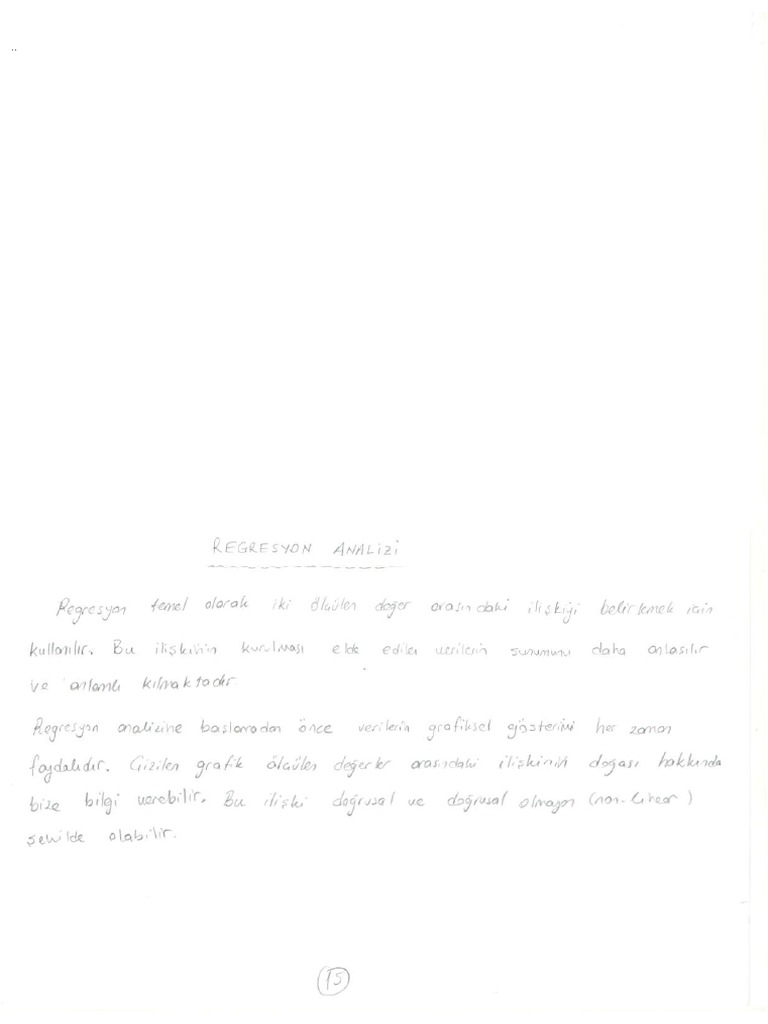 REGRESYON ANALİZİ
Regresyon temel olarak iki ölçülen değer arasındaki ilişkiyi belirlemek için
kullanılır. Bu ilişkinin kurulması elde edilen verilerin sunumunu daha anlaşılır
ve anlamlı kılmaktadır.
Regresyon analizine başlamadan önce verilerin grafiksel gösterimi her zaman
faydalıdır. Çizilen grafik ölçülen değerler arasındaki ilişkinin doğası hakkında
bize bilgi verebilir. Bu ilişki doğrusal ve doğrusal olmayan (non-linear)
şekilde olabilir.
15